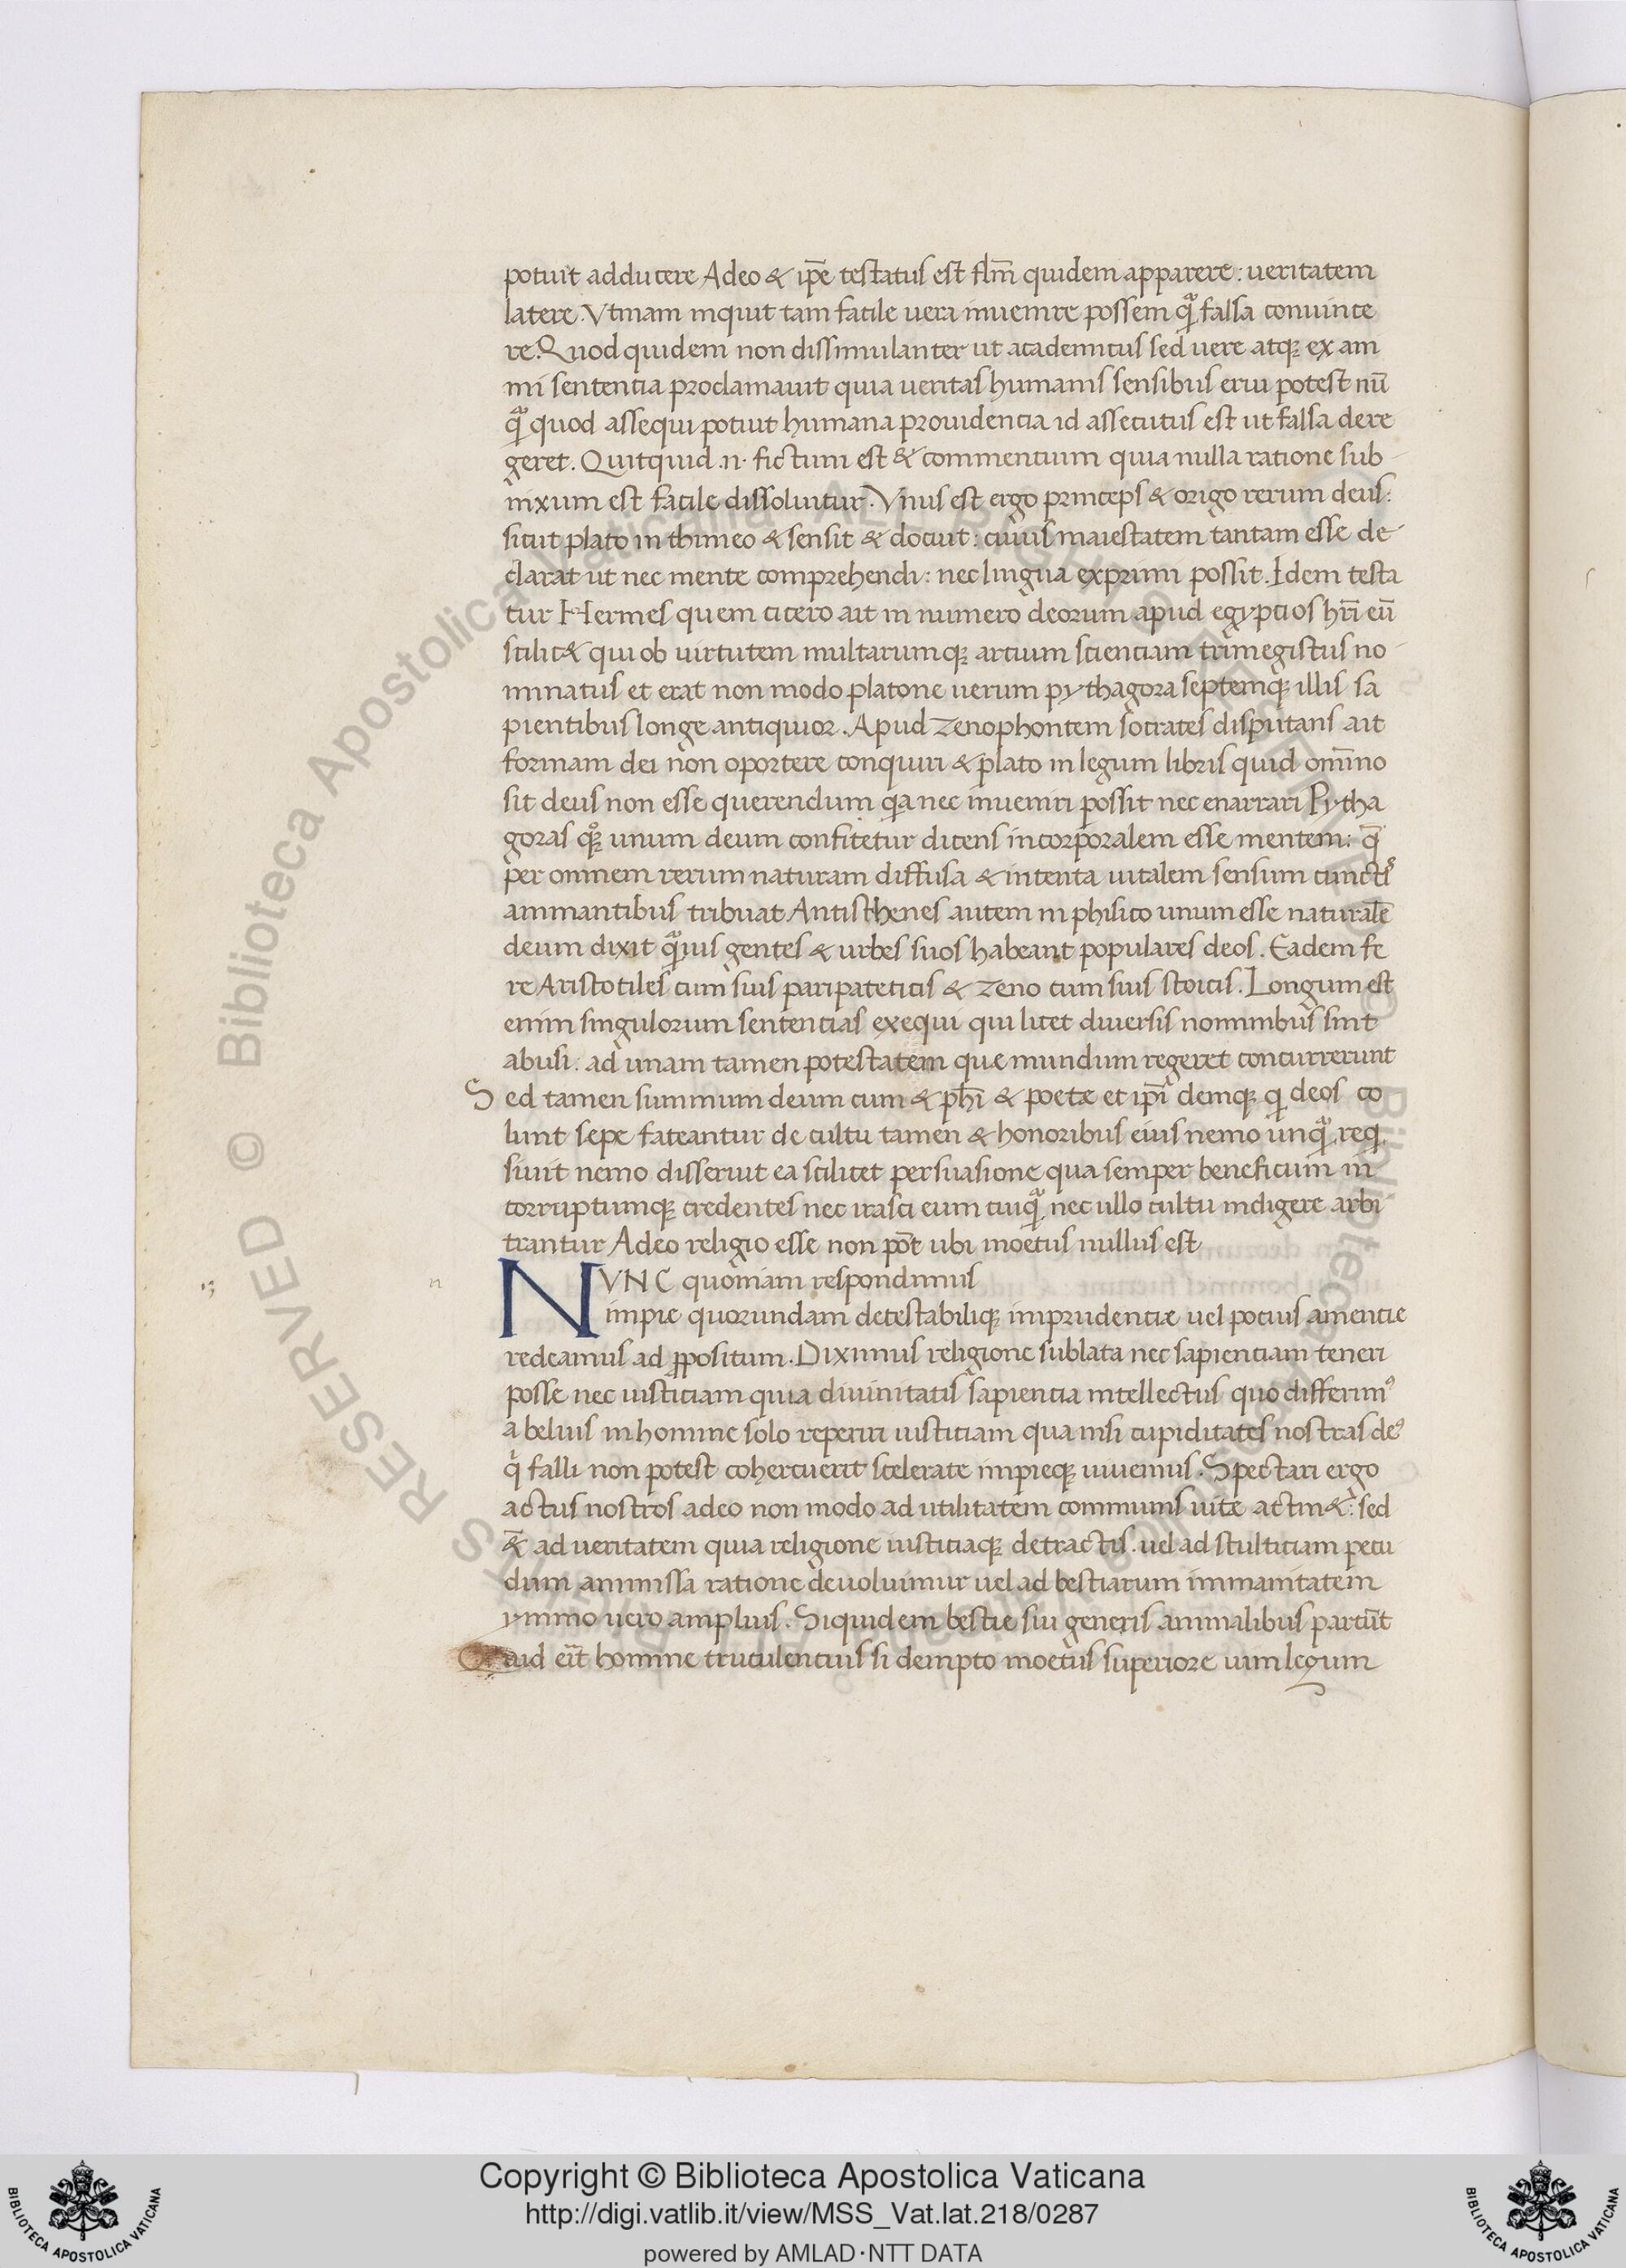 potuit adducere Adeo & ip̄e testatus est flm̄ quidem apparere: ueritatem
latere. Vtinam inquit tam facile uera inuenire possem qᷓ falsa conuince
re. Quod quidem non dissimulanter ut academicus sed uere atqꝫ ex ani
mi sentencia proclamauit quia ueritas humanis sensibus erui potest nū
qᷓ quod assequi potuit humana prouidencia id assecutus est ut falsa dere
geret. Quitquid .n. fictum est & commenticium quia nulla ratione sub
nixum est facile dissoluitur. Vnus est ergo princeps & origo rerum deus:
sicut plato in thimeo & sensit & docuit: cuius maiestatem tantam esse de
clarat ut nec mente comprehendi: nec lingua exprimi possit. Idem testa
tur Hermes quem cicero ait in numero deorum apud egypcios hr̄i eū
scilic& qui ob uirtutem multarumqꝫ artium scienciam trimegistus no
minatus et erat non modo platone uerum pythagora septemqꝫ illis sa
pientibus longe antiquior. Apud Zenophontem socrates disputans ait
formam dei non oportere conquiri & plato in legum libris quid om̄ino
sit deus non esse querendum qa nec inueniri possit nec enarrari Pytha
goras qꝫ° unum deum confitetur dicens incorporalem esse mentem: q̄
per omnem rerum naturam diffusa & intenta uitalem sensum cunctis
animantibus tribuat Antisthenes autem in phisico unum esse naturalē
deum dixit qᷓuis gentes & urbes suos habeant populares deos. Eadem fe
re Aristotiles cum suis paripateticis & Zeno cum suis stoicis. Longum est
enim singulorum sentencias exequi qui licet diuersis nominibus sint
abusi: ad unam tamen potestatem que mundum regeret concurrerunt
Sed tamen summum deum cum & phī & poetæ et ipī demqꝫ qi deos co
lunt sepe fateantur de cultu tamen & honoribus eius nemo unqᷓ req
siuit nemo disseruit ea scilicet persuasione qua semper beneficum in
corruptumqꝫ credentes nec irasci eum cuiqᷓ nec ullo cultu indigere arbi
trantur Adeo religio esse non pōt ubi moetus nullus est
NVNC quoniam respondimus
impie quorundam detestabiliqꝫ imprudenciæ uel pocius amencie
redeamus ad ꝓpositum. Diximus religione sublata nec sapienciam teneri
posse nec iusticiam quia diuinitatis sapiencia intellectus quo differimꝰ
a beluis in homine solo reperiri iusticiam qua nisi cupiditates nostras deꝰ
qi falli non potest cohercuerit scelerate impieqꝫ uiuemus. Spectari ergo
actus nostros adeo non modo ad utilitatem communis uite actin&: sed
&̄ ad ueritatem quia religione iusticiaqꝫ detractis. uel ad stulticiam pecu
dum amissa ratione deuoluimur uel ad bestiarum immanitatem
ymmo uero amplius. Siquidem bestie sui generis animalibus parcūt
Quid eīt homine truculencius si dempto moetus superiore uim legum
n
Copyright © Biblioteca Apostolica Vaticana
http://digi.vatlib.it/view/MSS_Vat.lat.218/0287
powered by AMLAD·NTT DATA
BIBLIOTECA APOSTOLICA VATICANA
BIBLIOTECA APOSTOLICA VATICANA